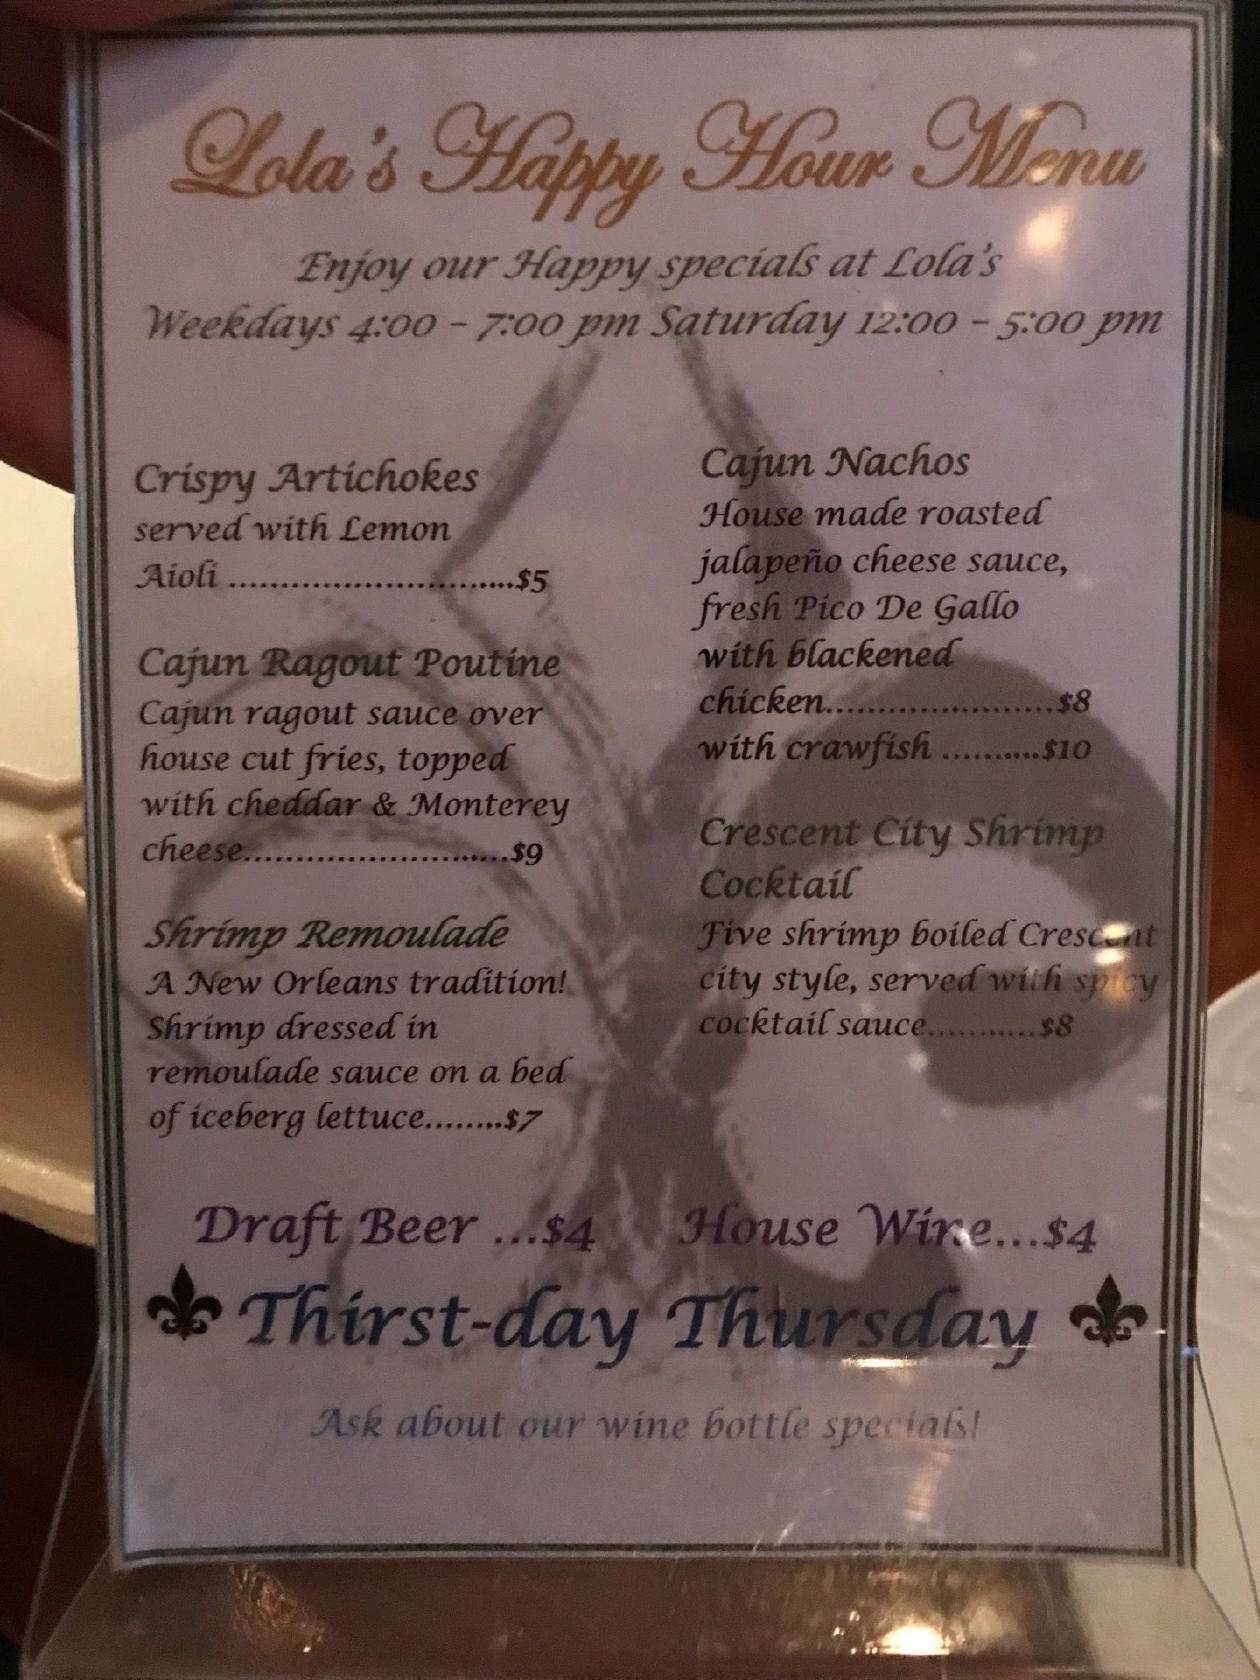 Lola's Happy Hour Menu
Enjoy our Happy specials at Lola's
Weekdays 4:00 - 7:00 pm Saturday 12:00 - 5:00 pm
Crispy Artichokes
served with Lemon
Aioli ............................$5
Cajun Ragout Poutine
Cajun ragout sauce over
house cut fries, topped
with cheddar & Monterey
cheese..........................$9
Shrimp Remoulade
A New Orleans tradition!
Shrimp dressed in
remoulade sauce on a bed
of iceberg lettuce........$7
Cajun Nachos
House made roasted
jalapeño cheese sauce,
fresh Pico De Gallo
with blackened
chicken......................$8
with crawfish ..........$10
Crescent City Shrimp
Cocktail
Five shrimp boiled Crescent
city style, served with spicy
cocktail sauce...........$8
Draft Beer ...$4 House Wine...$4
Thirst-day Thursday
Ask about our wine bottle specials!